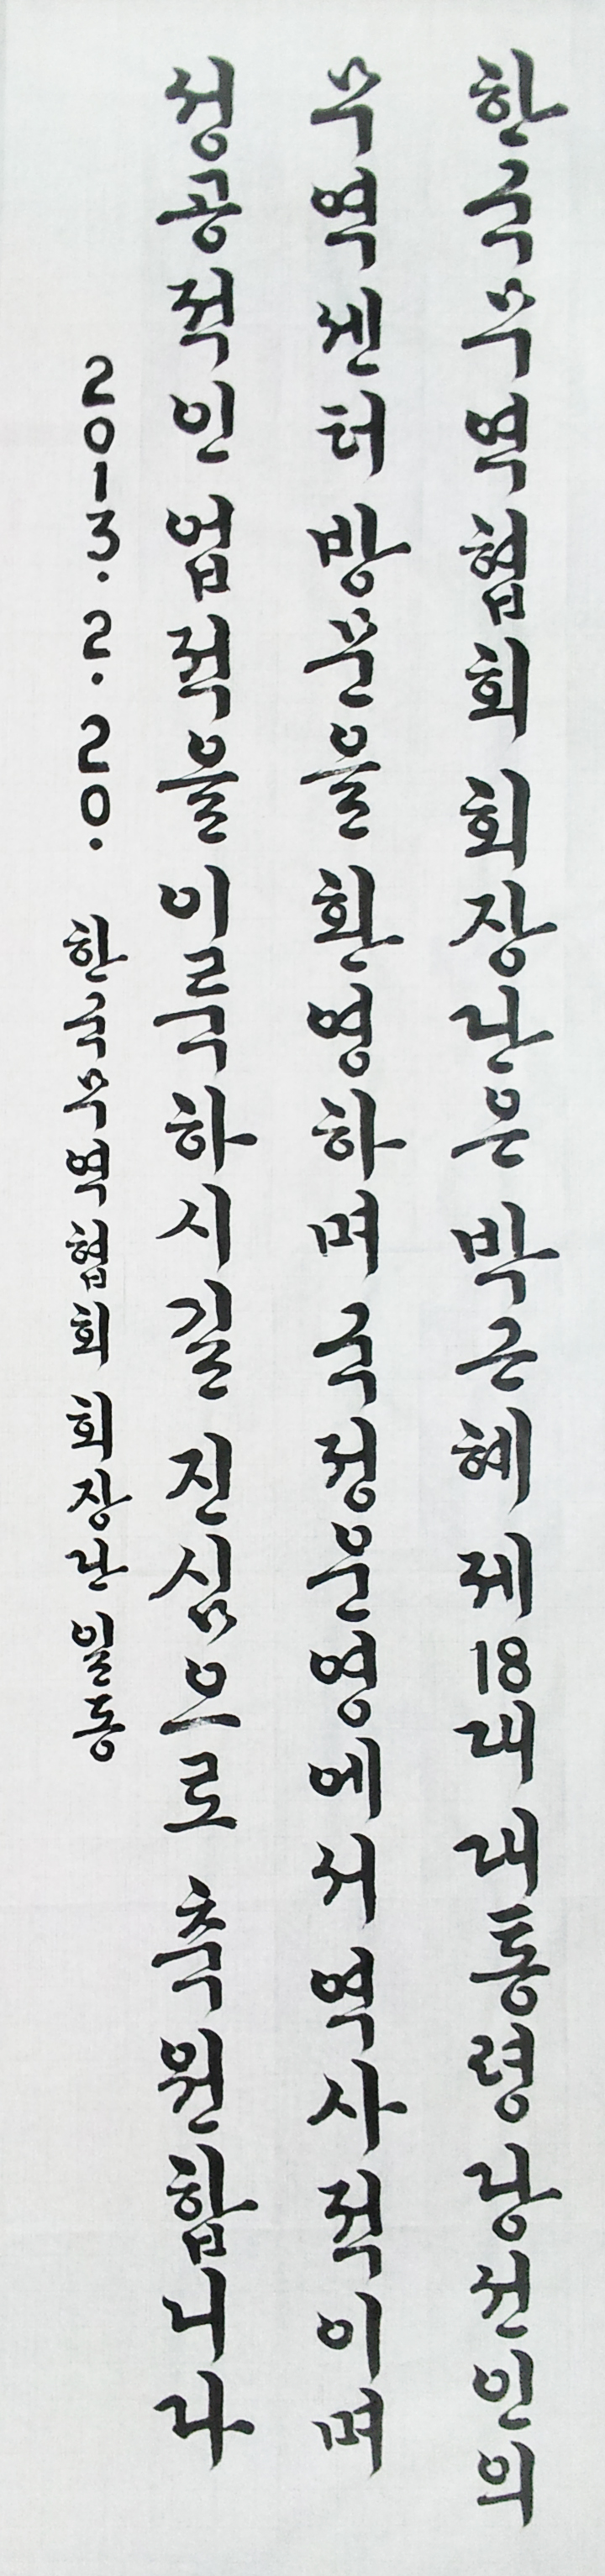 한국무역협회 회장단은 박근혜 제18대 대통령 당선인의
무역센터 방문을 환영하며 국정운영에서 역사적이며
성공적인 업적을 이룩하시길 진심으로 축원합니다
2013. 2. 20. 한국무역협회 회장단 일동